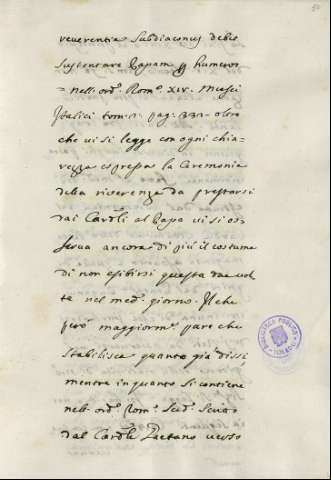 reverentia Subdiaconus debet
sustentare Papam per humeros
= nell'ord. Rom.o XIV. Musei
Italici tom. 2. pag. 331 = oltre
che vi si legge con ogni chia-
rezza espressa la Ceremonia
della riverenza da prestarsi
dai Card.li al Papa vi si os-
serva ancora di più il costume
di non esibirsi questa due vol-
te nel med.o giorno. Il che
però maggiorm.e pare che
stabilisca quanto già dissi,
mentre in quanto si contiene
nell'ord.o Rom.o Sud.o Scritto
dal Card.le Gaetano verso
BIBLIOTECA PUBLICA
TOLEDO